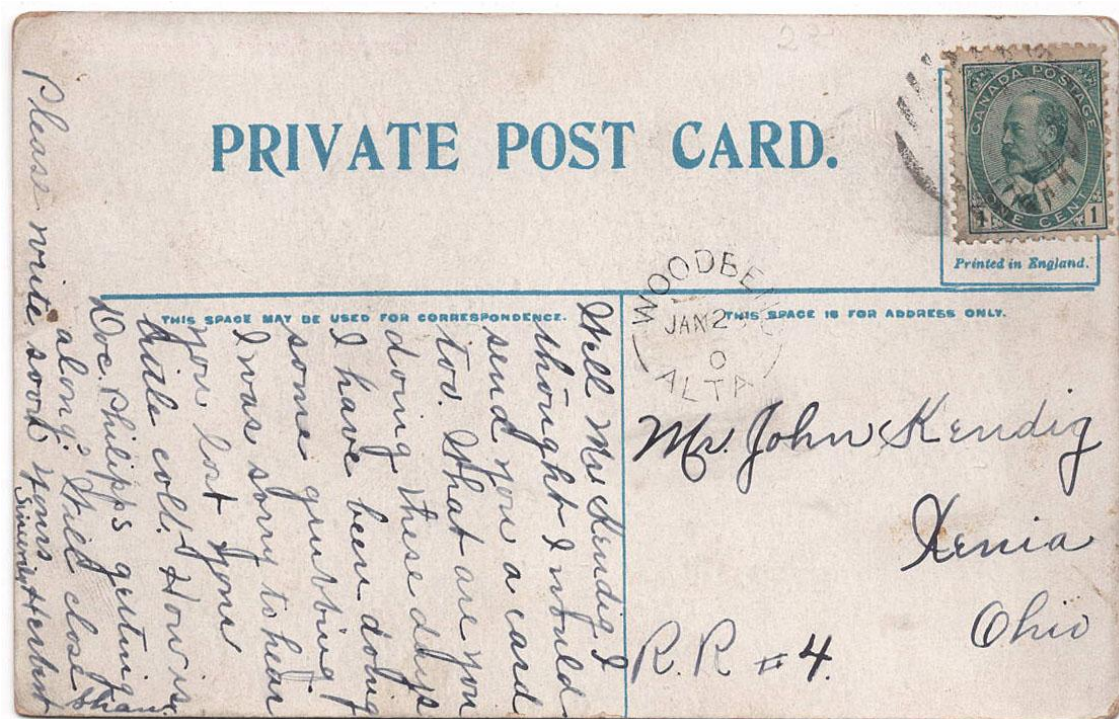 PRIVATE POST CARD.
CANADA POSTAGE
ONE CENT
1 1
Printed in England.
THIS SPACE MAY BE USED FOR CORRESPONDENCE.
THIS SPACE IS FOR ADDRESS ONLY.
WOODBE
JAN 2
0
ALTA
Well Mr Kendig I
thought I would
send you a card
too. What are you
doing these days
I have been doing
some grubbing.
I was sorry to hear
you lost your
little colt. How is
Doc. Philipps getting
along? Will close
Please write soon yours
Sincerely Herbert
Shaw.
Mr. John Kendig
Xenia
Ohio
R. R #4.